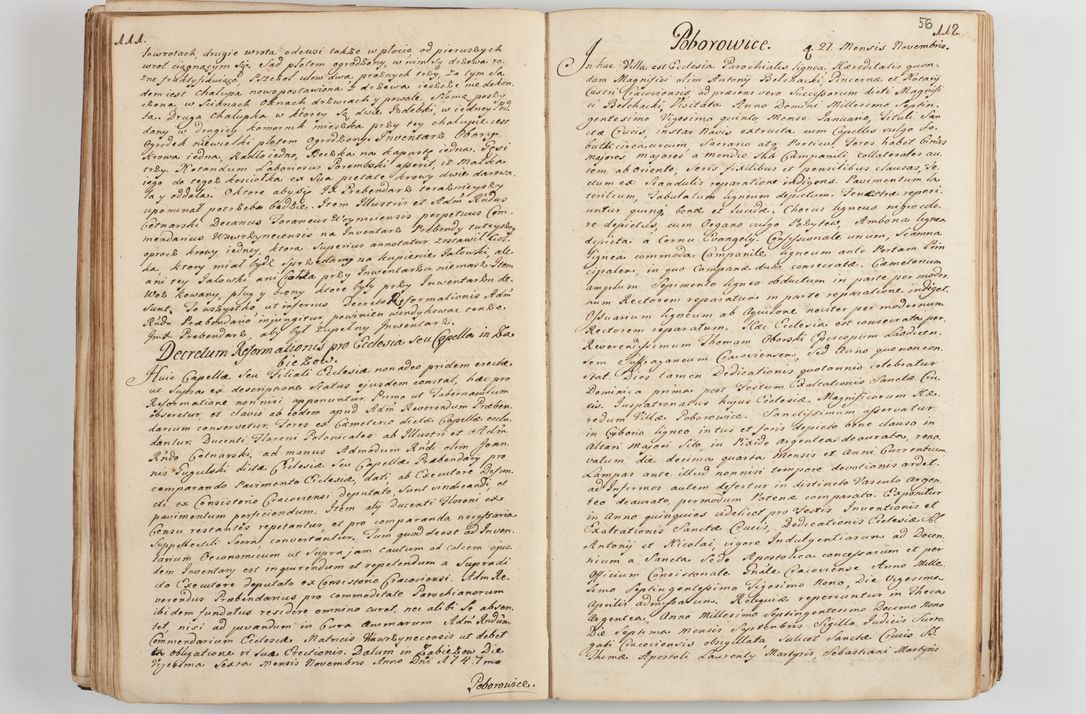 111.
Iawrotach drugie wrota odewsi także w płocie od pierwszych
wrot ciągnącym się. Sad płotem ogrodzony, w nim są drzewa ro-
żne fruktyfikujące. Pszczoł ulow dwa, prożnych trzy. Za tym sa-
dem iest Chałupa nowopostawiona z drzewa ieszcze nie dokoń-
czona, w Scianach Oknach drzwiach y powale, Słomą poszy-
ta. Druga Chałupka w ktorey są dwie Izdebki, w iedney Pod-
dany, w drugiey komornik mieszka przy tey chałupie iest
Ogrodek niewielki płotem ogrodzony. Inventarz Obory.
Krowa iedna, Radło iedno, Beczka na kapustę iedna. Gęsi
trzy. Notandum Laboriosus Porembski asperit, iż Matka
iego do tegoż kościołka ex Sua pietate krowy dwie darowa-
ła y oddała. Oktore abysię JX Prebendarz teraźnieyszy
upomniał potrzeba będzie. Item Illustris et Adm Rndus
Cetnarski Decanus Foraneus Woyniciensis perpetuus Com-
mendarius Wawrzyncensis na Inwentarz Prebendy tuteyszey
oprocz krowy iedney, ktora Superius annotatur zostawił Ciel-
ka, ktory miał bydz sprzedany na kupienie Jałowki, ale
ani tey Jałowki ani Cielka przy Inwentarzu niemasz. Item
Woz kowany, pług y brony ktore były przy Inwentarzu de-
sunt. To wszystko ut inferius Decreto Reformationis Adm
Rndo Præbendario injungitur, powinien windykować tenże
Imć Prebendarz aby był zupełny Inwentarz.
Decretum Reformationis pro Ecclesia Seu Capella in Za-
bierzow.
Huic Capellæ Seu Filiali Ecclesiæ non adeo pridem erectæ
ut Supra ex descriptione Status ejusdem constat, hæc pro
Reformatione non nisi apponuntur. Primo ut Tabernaculum
obseretur, et clavis ab eodem apud Adm Reverendum Præben-
darium conservetur. Fores ex Cæmeterio dictæ Capellæ occlu-
dantur. Ducenti Floreni Polonicales ab Illustri et Adm
Rndo Cetnarski, ad manus Admodum Rndi olim Joan-
nis Pugulski dictæ Ecclesiæ Seu Capellæ Præbendarÿ pro
comparando Pavimento Ecclesiæ, dati, ab Executore Defun-
cti ex Consistorio Cracoviensi deputato, Sunt vindicandi, et
pavimentum perficiendum. Item aly ducenti Floreni ex
Censu restantes repetantur, et pro comparanda necessaria
Suppellectili Sacra convertantur. Tum quod deest ad Inven-
tarium Oeconomicum ut Supra jam cautum ad calcem ejus-
dem Inventarÿ est inquirendum et repetendum a Supradi-
do Executore deputato ex Consistorio Cracoviensi. Adm Re-
verendus Præbendarius pro commoditate Parochianorum
ibidem fundatus residere omnino curet, nec alibi se absen-
tet, nisi ad juvandum in Cura animarum Adm Rndum
Commendarium Ecclesiæ Matricis Wawrzyncensis ut debet
ex obligatione vi Suæ Erectionis. Datum in Zabierzow Die
Vigesima Sexta Mensis Novembris Anno Dni 1747mo
Poborowice.
56
112
Poborowice.
27 Mensis Novembris.
In hac Villa est Ecclesia Parochialis lignea Hæreditatis quon-
dam Magnifici olim Antonÿ Bełchacki Pincernæ et Notarÿ
Castri Cracoviensis, ad præsens vero Successorum dicti Magnifi-
ci Bełchacki, Visitata Anno Domini Millesimo Septin-
gentesimo Vigesimo quinto Mense Januario, Tituli San-
ctæ Crucis, instar Navis extructa cum Capellis vulgo So-
butki circa eurum, Sacrario atq Porticu. Fores habet binas
Majores, majores a meridie Sub Campanili, collaterales au-
tem ab Oriente, Seris fixilibus et pensilibus clausas, Te-
ctum ex Scandulis reparatione indigens. Pavimentum la-
teritium, Tabulatum ligneum depictum. Fenestræ reperi-
untur quinq bonæ et lucidæ, Chorus ligneus nigro colo-
re depictus, cum Organo vulgo Pozytew, Ambona lignea
depicta a Cornu Evangelÿ. Confessionale unum, Scamna
lignea commoda Campanile ligneum ante Portam Prin-
cipalem, in quo Campanæ duæ consecratæ. Cæmeterium
amplum Sepimento ligneo obductum in parte per moder-
num Rectorem reparatum in parte reparatione indiget.
Ossuarium ligneum ab Aquilone noviter per modernum
Rectorem reparatum. Hæc Ecclesia est consecrata per
Reverendissimum Thomam Oborski Episcopum Laodicen-
sem Suffraganeum Cracoviensem, Sed Anno quo non con-
stat. Dies tamen Dedicationis quotannis celebratur
Dominica prima post Festum Exaltationis Sanctæ Cru-
cis. Juspatronatus hujus Ecclesiæ Magnificorum Hæ-
redum Villæ Poborowice. Sanctissimum asservatur
in Cyborio ligneo intus et foris depicto bene clauso in
Altari Majori Sito, in Pixide Argentea deaurata, reno-
vatum die decima quarta Mensis et Anni Currentium
Lampas ante illud nonnisi tempore devotionis ardet.
ad Infirmos autem defertur in distincto Vasculo Argen-
teo deaurato, per modum Patenæ comparato. Exponitur
in Anno quinquies videlicet pro Festis Inventionis et
Exaltationis Sanctæ Crucis, Dedicationis Ecclesiæ SS.
Antonÿ et Nicolai, vigore Indulgentiarum ad Decen-
nium a Sancta Sede Apostolica concessarum et per
Officium Consistoriale Gnale Cracoviense Anno Mille-
simo Septingentesimo Trigesimo Nono, Die Vigesima
Aprilis admissarum. Reliquiæ reperiuntur in Theca
Argentea, Anno Millesimo Septingentesimo Decimo Nono
Die Septima Mensis Septembris, Sigillo Judicis Surro-
gati Cracoviensis obsigillata, Scilicet Sanctæ Crucis SS.
Thomæ Apostoli Laurentÿ Martyris Sebastiani Martyris